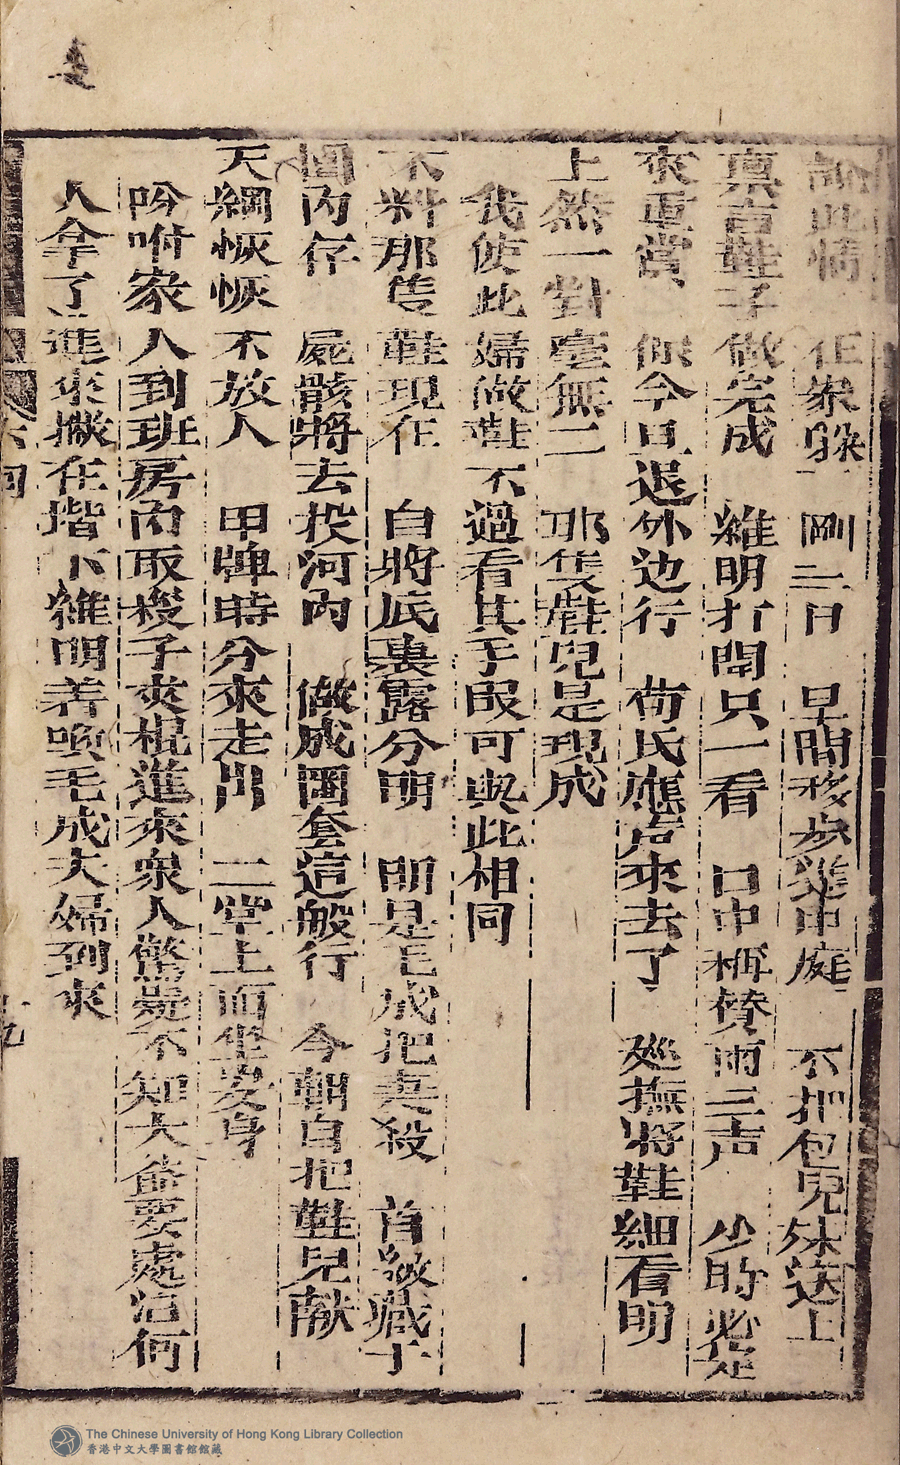 論此情 在眾躲 剛二日 早間移步進中庭 不把包兒殊送上
稟言鞋子做完成 雍明打開只一看 口中稱贊兩三声 少時必定
來重賞 候今且退外边行 荷氏應声來去了 廵撫將鞋細看明
上然一對毫無二 那隻鞋兒是現成
我使此婦做鞋不過看其手段可與此相同
不料那隻鞋現在 自將底裏露分明 明是毛成把妻殺 首級藏于
園內存 屍骸將去投河內 做成圈套這般行 今朝自把鞋兒献
天網恢恢不放人 甲牌時分來走出 二堂上面坐安身
吩咐家人到班房內取梭子夾棍進來衆人驚疑不知大爺要處治何
人拿了進來撒在堦下雍明着喚毛成夫婦到來
The Chinese University of Hong Kong Library Collection
香港中文大學圖書館館藏